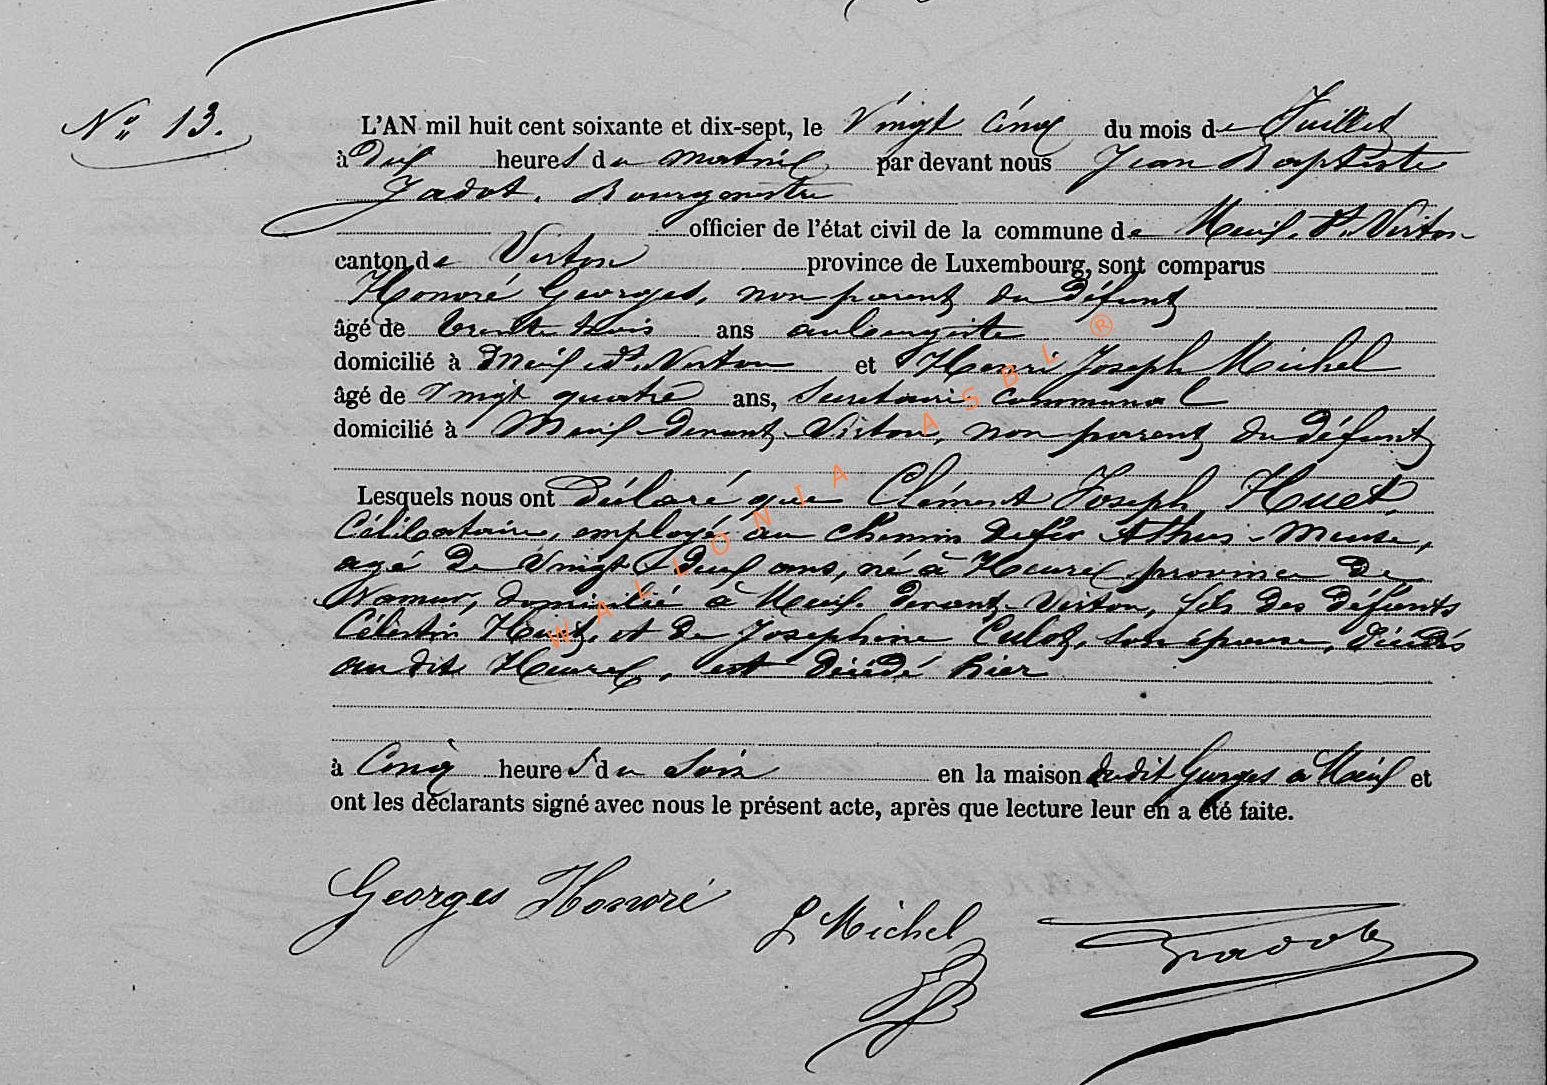 N° 13.
L'AN mil huit cent soixante et dix-sept, le Vingt cinq du mois de Juillet
à dix heures du matin par devant nous Jean Baptiste
Jadot, Bourgmestre
officier de l'état civil de la commune de Meix-dt-Virton
canton de Virton province de Luxembourg, sont comparus
Honoré Georges, non parent du défunt
âgé de trente trois ans aubergiste
domicilié à Meix-dt-Virton et Henri Joseph Michel
âgé de Vingt quatre ans, Secretaire communal
domicilié à Meix-devant-Virton, non parent du défunt
Lesquels nous ont déclaré que Clément Joseph Huet,
Célibataire, employé au chemin de fer Athus-Meuse,
agé de Vingt deux ans, né à Heure province de
Namur, domicilié à Meix-devant-Virton, fils des défunts
Célestin Huet, et de Josephine Culot, son épouse, décédés
au dit Heure, est décédé hier
à Cinq heures du soir en la maison dudit Georges à Meix et
ont les déclarants signé avec nous le présent acte, après que lecture leur en a été faite.
Georges Honoré
Michel
Jadot
WALLONIA ASBL ®